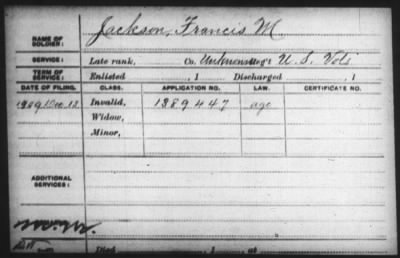 Jackson, Francis M.
NAME OF SOLDIER:
SERVICE: Late rank, Co. Unknown Reg't U. S. Vols
TERM OF SERVICE: Enlisted , 1 Discharged , 1
DATE OF FILING. CLASS. APPLICATION NO. LAW. CERTIFICATE NO.
1909 Dec. 13 Invalid, 1389447 age
Widow,
Minor,
ADDITIONAL SERVICES:
Died , 1 , at